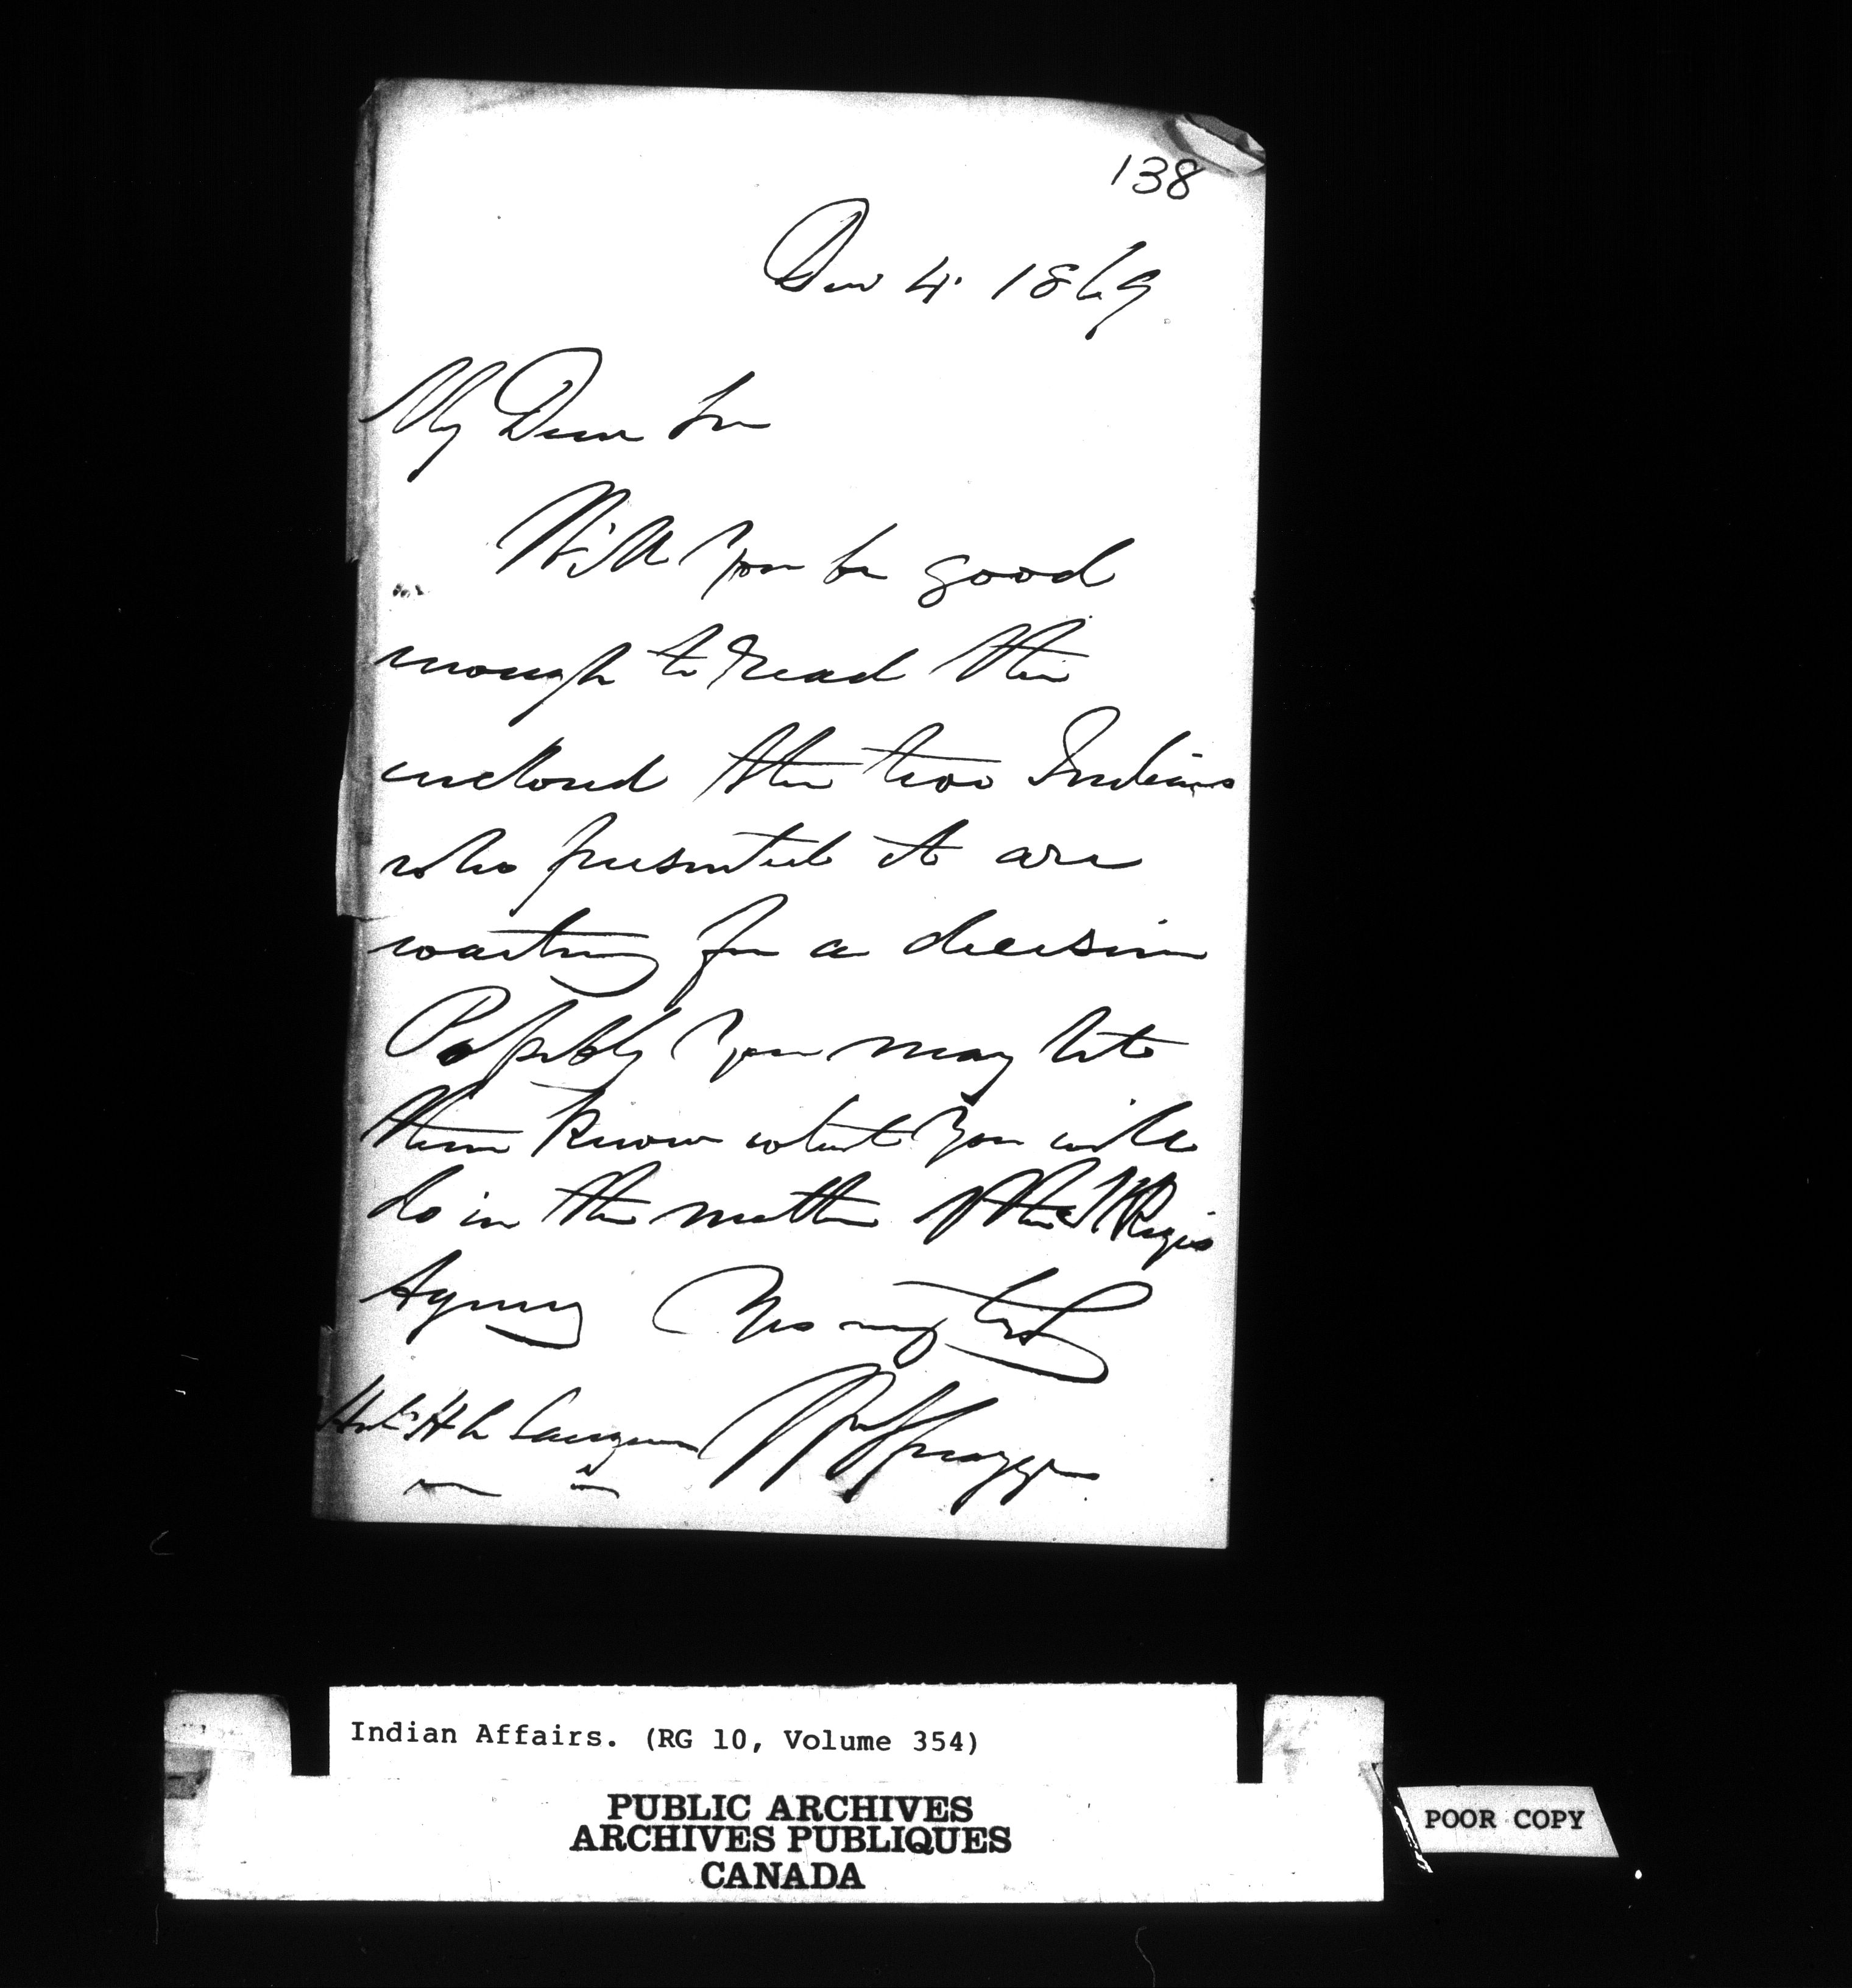 138
Dec 4. 1869
My Dear Sir
Will you be good
enough to read the
enclosed the two Indians
who presented it are
waiting for a decision
Possibly you may let
them know what you will
do in the matter of the St Regis
Agency Yrs very truly
Honble H L Langevin Wm Spragge
Indian Affairs. (RG 10, Volume 354)
PUBLIC ARCHIVES
ARCHIVES PUBLIQUES
CANADA
POOR COPY